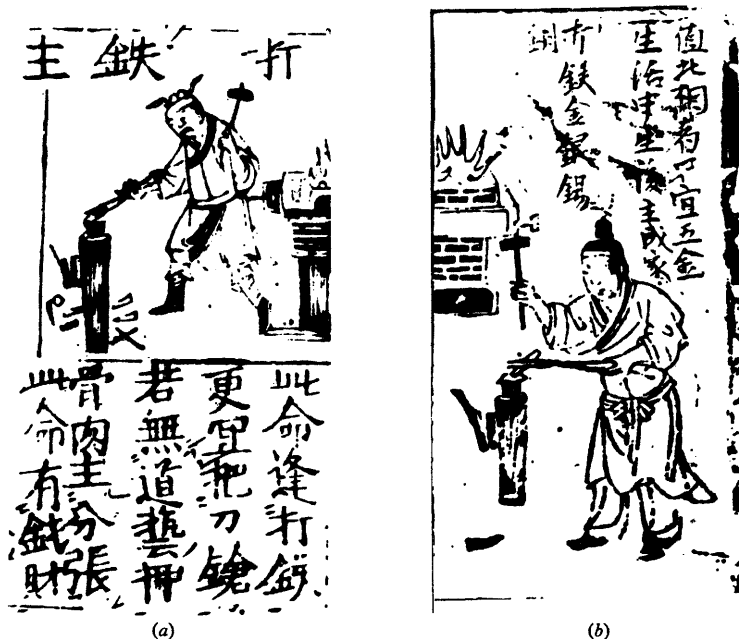 打鉄主
此命逢打鉄
更宜把刀鎗
若無道藝押
骨肉主分張
此命有錢財
(a)
值此相者只宜五金
生活中年後主成家
打鉄金銀錫
銅
(b)